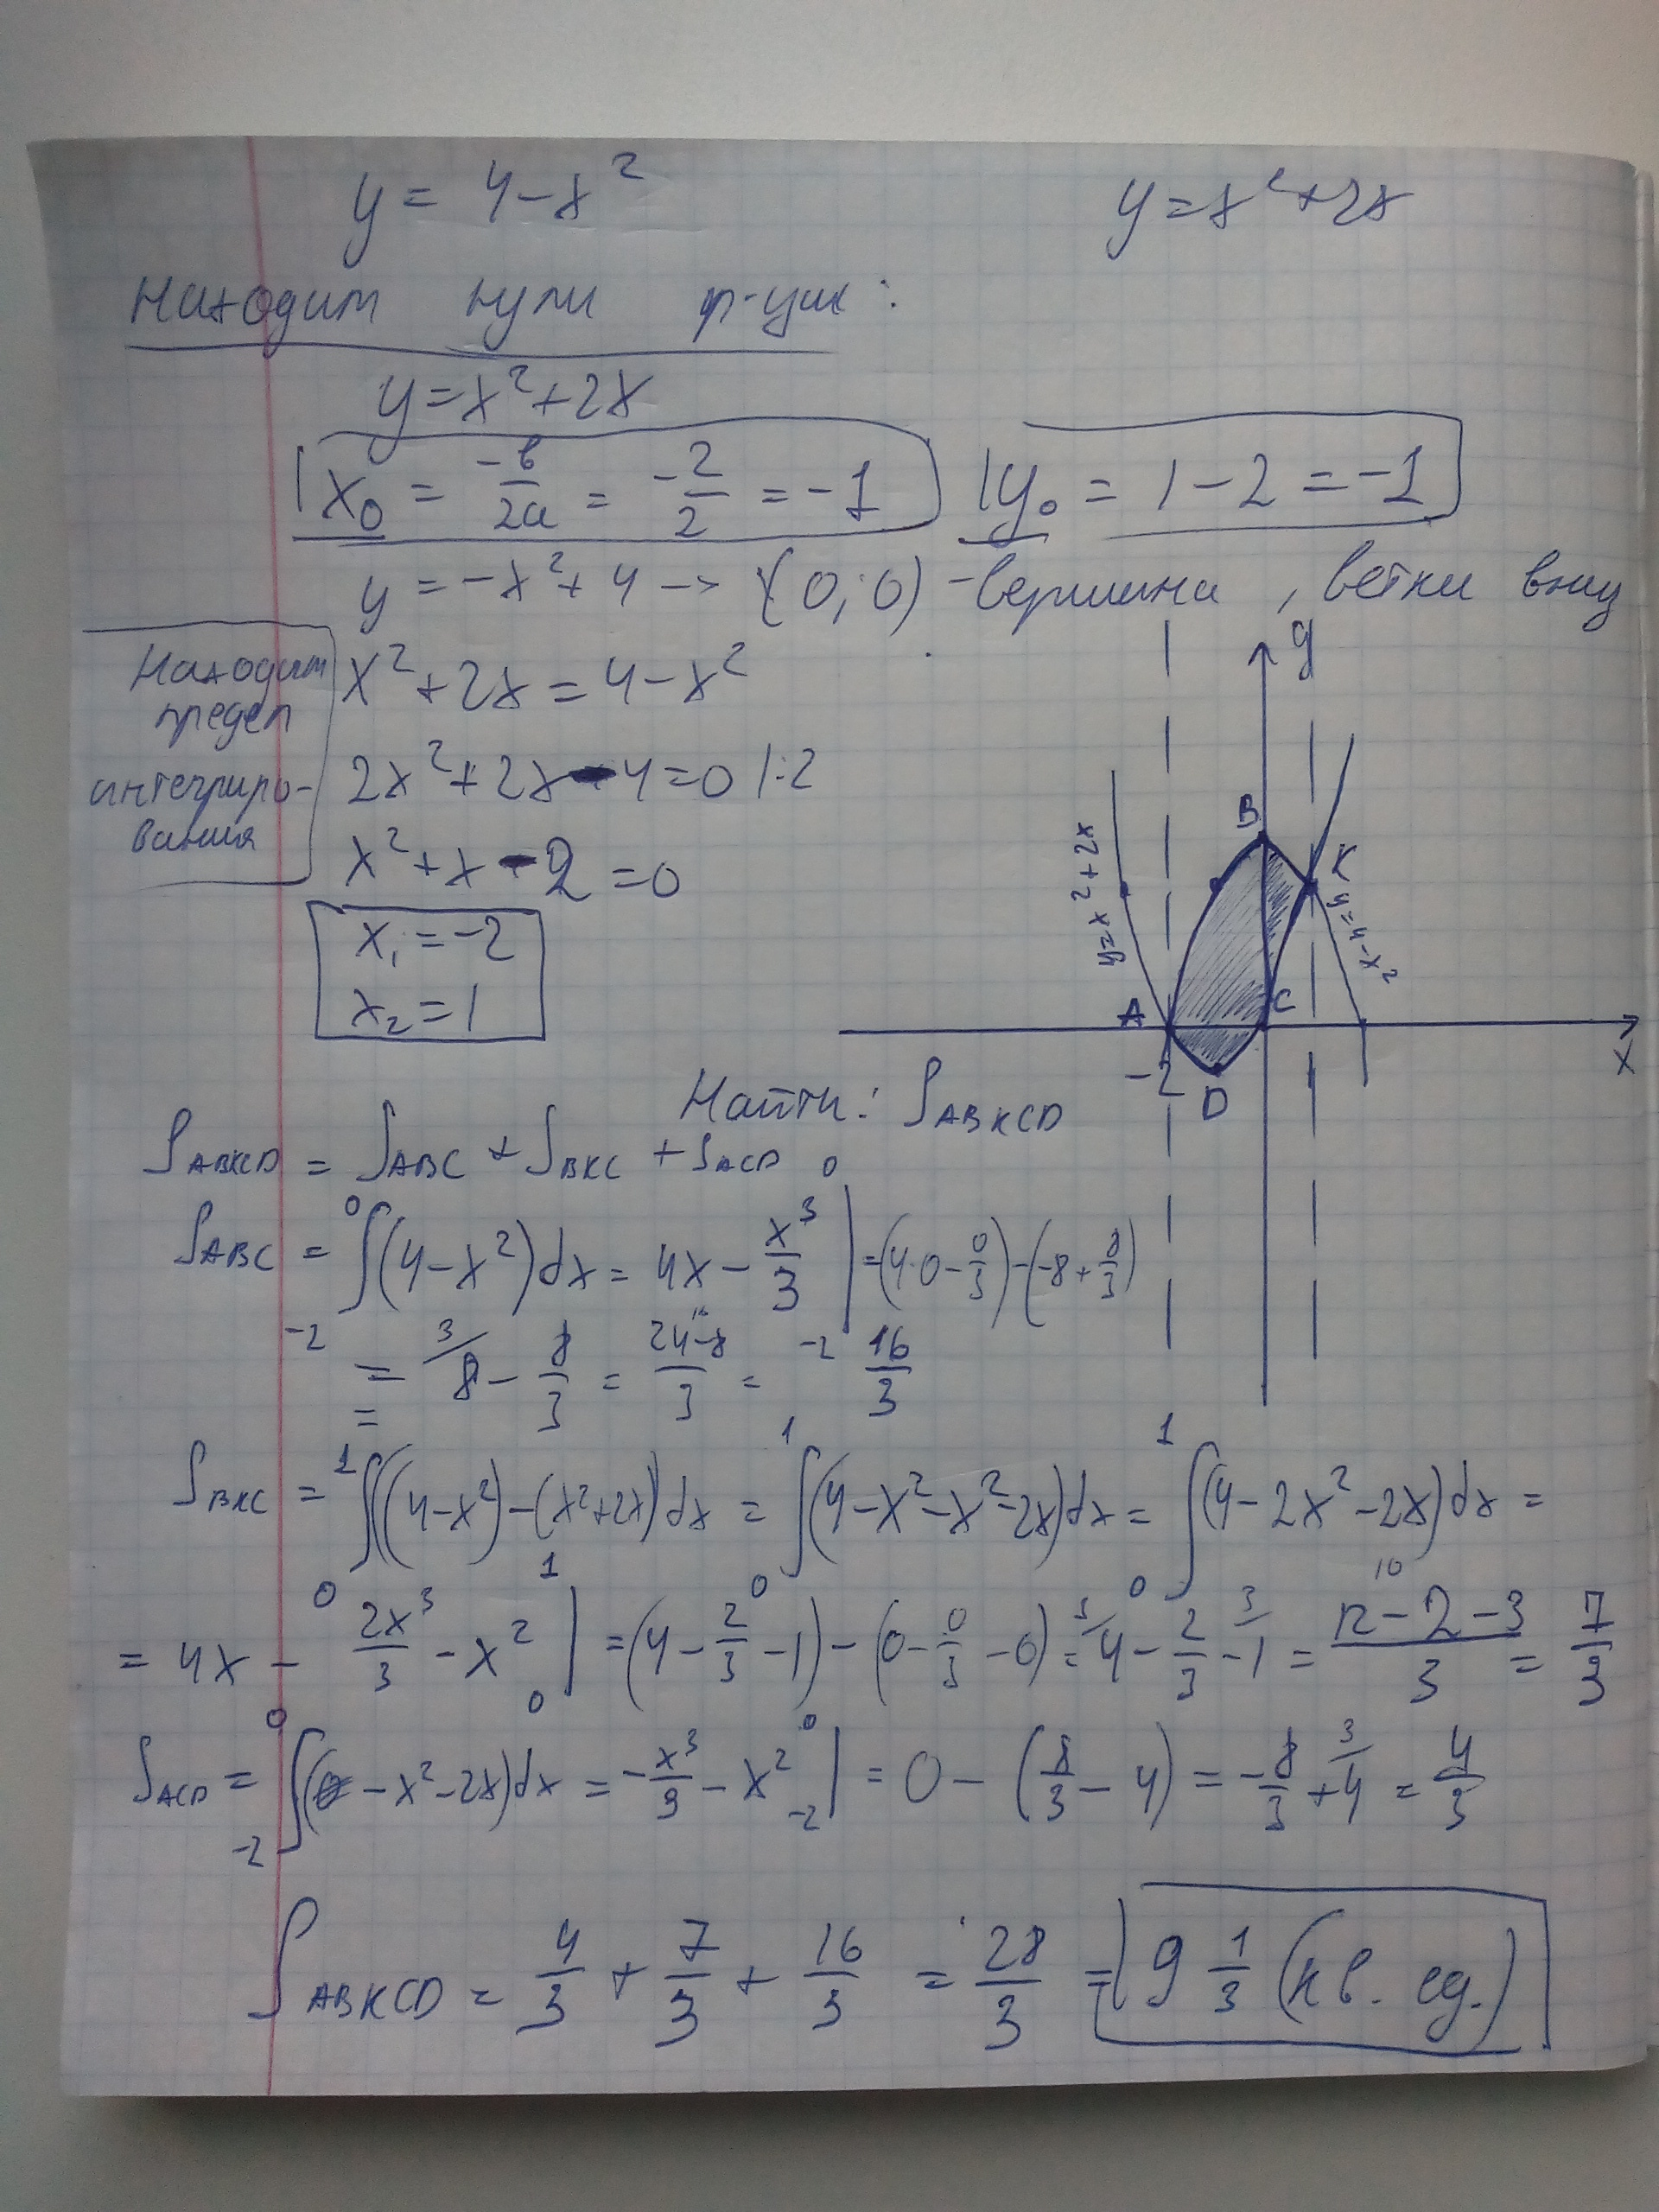 y = 4 - x² y = x² + 2x
Находим нули ф-ции:
y = x² + 2x
x₀ = -в/2a = -2/2 = -1 y₀ = 1 - 2 = -1
y = -x² + 4 -> (0; 0) - вершина, ветки вниз
Находим предел интегрирования
x² + 2x = 4 - x²
2x² + 2x - 4 = 0 |:2
x² + x - 2 = 0
x₁ = -2
x₂ = 1
y
B
K
y = x² + 2x
y = 4 - x²
A
C
x
-2
D
Найти: S ABKCD
S ABKCD = S ABC + S BKC + S ACD
S ABC = ∫₋₂⁰ (4 - x²) dx = 4x - x³/3 |₋₂⁰ = (4·0 - 0/3) - (-8 + 8/3)
= = ³/8 - 8/3 = 24 - 8/3 = 16/3
S BKC = ∫₀¹ ((4 - x²) - (x² + 2x)) dx = ∫₀¹ (4 - x² - x² - 2x) dx = ∫₀¹ (4 - 2x² - 2x) dx =
= 4x - 2x³/3 - x² |₀¹ = (4 - 2/3 - 1) - (0 - 0/3 - 0) = ³/4 - 2/3 - ³/1 = 12 - 2 - 3/3 = 7/3
S ACD = ∫₋₂⁰ (-x² - 2x) dx = -x³/3 - x² |₋₂⁰ = 0 - (8/3 - 4) = -8/3 + ³/4 = 4/3
S ABKCD = 4/3 + 7/3 + 16/3 = 28/3 = 9 1/3 (кв. ед.)